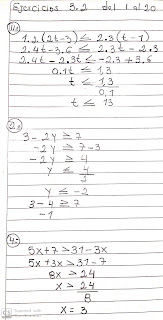 Ejercicios 3.2 del 1 al 20
1.2(2t-3) ≤ 2.3(t-1)
2.4t-3.6 ≤ 2.3t - 2.3
2.4t - 2.3t ≤ -2.3 + 3.6
0.1t ≤ 1.3
t ≤ 1.3
0.1
t ≤ 13
3 - 2y ≥ 7
-2y ≥ 7-3
-2y ≥ 4
y ≤ 4
-2
y ≤ -2
3-4 ≥ 7
-1
4:-
5x+7 > 31-3x
5x+3x > 31-7
8x > 24
x > 24
8
x = 3